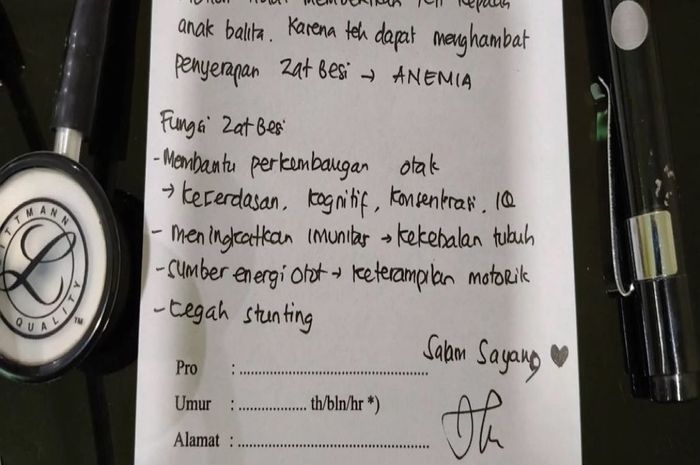 anak balita. Karena teh dapat menghambat
penyerapan zat Besi → ANEMIA
Fungsi Zat Besi
- Membantu perkembangan otak
→ Kecerdasan, Kognitif, Konsentrasi, IQ
- meningkatkan imunitas → kekebalan tubuh
- sumber energi otot → keterampilan motorik
- cegah stunting
Salam Sayang ♥
Pro : ..........................................
Umur : .................. th/bln/hr *)
Alamat : ..........................................
LITTMANN
QUALITY
TM